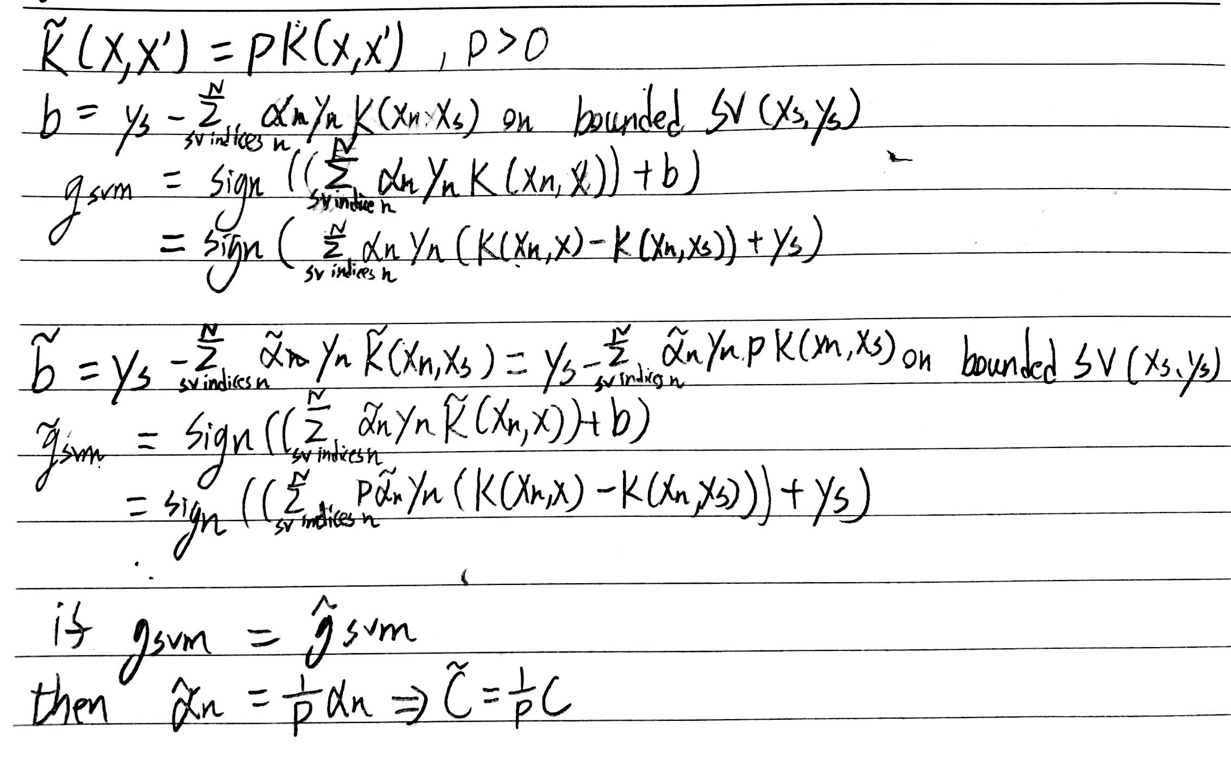 K̃(x,x') = pK(x,x') , p>0
b = ys - Σ^N_{sv indices n} αn yn K(xn,xs) on bounded SV (xs,ys)
gsvm = sign((Σ^N_{sv indice n} αn yn K(xn,x)) + b)
= sign(Σ^N_{sv indices n} αn yn (K(xn,x) - K(xn,xs)) + ys)
b̃ = ys - Σ^N_{sv indices n} α̃n yn K̃(xn,xs) = ys - Σ^N_{sv indices n} α̃n yn p K(xn,xs) on bounded SV (xs,ys)
g̃svm = sign((Σ^N_{sv indices n} α̃n yn K̃(xn,x)) + b)
= sign((Σ^N_{sv indices n} pα̃n yn (K(xn,x) - K(xn,xs))) + ys)
if gsvm = g̃svm
then α̃n = 1/p αn ⇒ C̃ = 1/p C